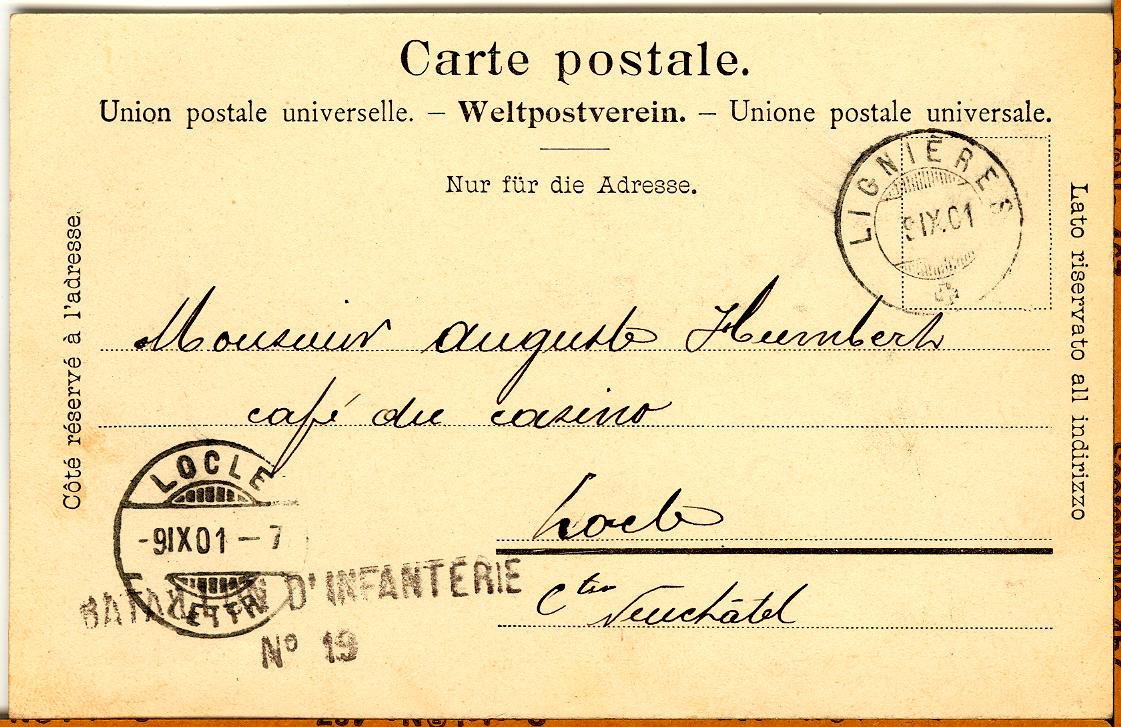 Carte postale.
Union postale universelle. – Weltpostverein. – Unione postale universale.
Nur für die Adresse.
Côté réservé à l'adresse.
Lato riservato all indirizzo
LIGNIÈRES
9IX.01
Monsieur Auguste Humbert
café du casino
Locle
Cton Neuchâtel
LOCLE
-9IX01-7
BATAILLON D'INFANTERIE
No 19